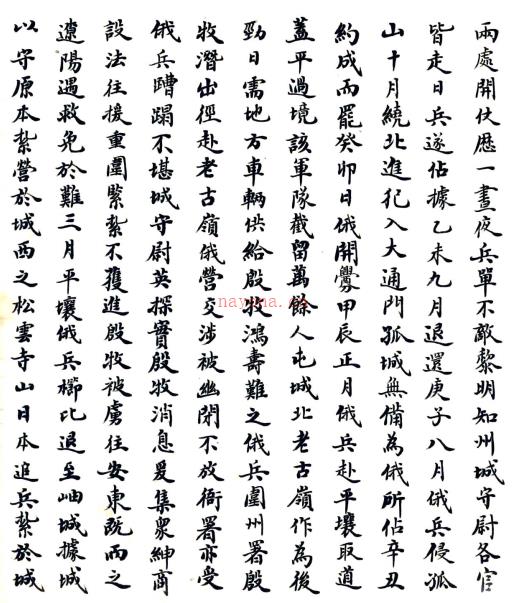 兩處開仗歷一晝夜兵單不敵黎明知州城守尉各官
皆走日兵遂佔據乙未九月退還庚子八月俄兵侵孤
山十月繞北進犯入大通門孤城無備為俄所佔辛丑
約成而罷癸卯日俄開釁甲辰正月俄兵赴平壤取道
蓋平過境該軍隊截留萬餘人屯城北老古嶺作為後
勁日需地方車輛供給殷牧鴻壽難之俄兵圍州署殷
牧潛出徑赴老古嶺俄營交涉被幽閉不放衙署亦受
俄兵蹧蹋不堪城守尉英探實殷牧消息爰集眾紳商
設法往援重圍緊紮不獲進殷牧被虜往安東既而之
遼陽遇救免於難三月平壤俄兵櫛比退至岫城據城
以守原本紮營於城西之松雲寺山日本追兵紮於城